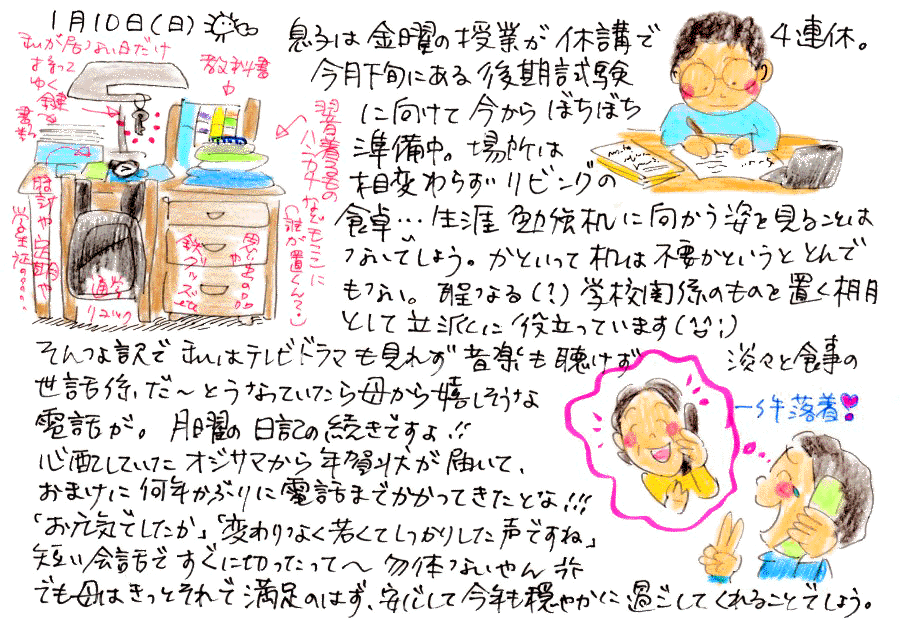 1月10日(日)
私が居ない日だけ
持って
ゆく鍵
教科書
書類
翌着る予定の
ハンカチなどモミニに
(誰が置くん?)
通学
リュック
鉄グッズetc
息子は金曜の授業が休講で4連休。
今月下旬にある後期試験
に向けて今からぼちぼち
準備中。場所は
相変わらずリビングの
食卓…生涯勉強机に向かう姿を見ることは
ないでしょう。かといって机は不要かというととんで
もない。聖なる(!)学校関係のものを置く棚
として立派に役立っています(^^;)
そんな訳で私はテレビドラマも見れず音楽も聴けず淡々と食事の
世話係だ〜とうなっていたら母から嬉しそうな
電話が。月曜の日記の続きですよ!!
心配していたオジサマから年賀状が届いて、
おまけに何年かぶりに電話までかかってきたとな!!!
「お元気でしたか」「変わりなく若くてしっかりした声ですね」
短い会話ですぐに切ったって〜勿体ないやん
でも母はきっとそれで満足のはず、安心して今年も穏やかに過ごしてくれることでしょう。
一件落着!